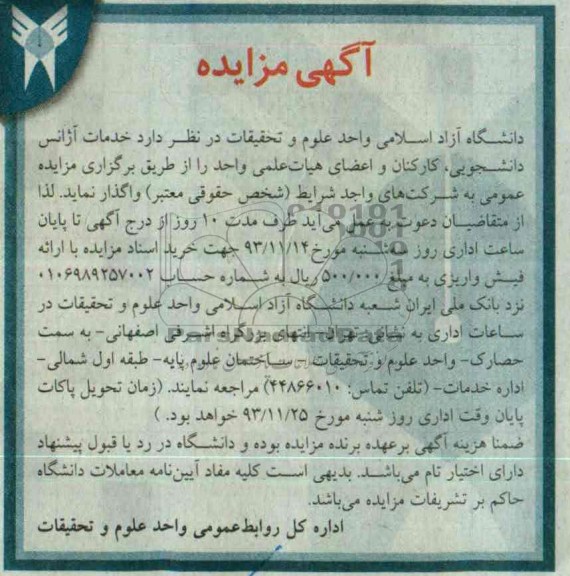 آگهی مزایده
دانشگاه آزاد اسلامی واحد علوم و تحقیقات در نظر دارد خدمات آژانس
دانشجویی، کارکنان و اعضای هیات‌علمی واحد را از طریق برگزاری مزایده
عمومی به شرکت‌های واجد شرایط (شخص حقوقی معتبر) واگذار نماید. لذا
از متقاضیان دعوت به عمل می‌آید ظرف مدت ۱۰ روز از درج آگهی تا پایان
ساعت اداری روز شنبه مورخ ۹۳/۱۱/۱۴ جهت خرید اسناد مزایده با ارائه
فیش واریزی به مبلغ ۵۰۰/۰۰۰ ریال به شماره حساب ۰۱۰۶۹۸۹۲۵۷۰۰۲
نزد بانک ملی ایران شعبه دانشگاه آزاد اسلامی واحد علوم و تحقیقات در
ساعات اداری به نشانی تهران- انتهای بزرگراه اشرفی اصفهانی- به سمت
حصارک- واحد علوم و تحقیقات - ساختمان علوم پایه- طبقه اول شمالی-
اداره خدمات- (تلفن تماس: ۴۴۸۶۶۰۱۰) مراجعه نمایند. (زمان تحویل پاکات
پایان وقت اداری روز شنبه مورخ ۹۳/۱۱/۲۵ خواهد بود. )
ضمنا هزینه آگهی برعهده برنده مزایده بوده و دانشگاه در رد یا قبول پیشنهاد
دارای اختیار تام می‌باشد. بدیهی است کلیه مفاد آیین‌نامه معاملات دانشگاه
حاکم بر تشریفات مزایده می‌باشد.
اداره کل روابط‌عمومی واحد علوم و تحقیقات